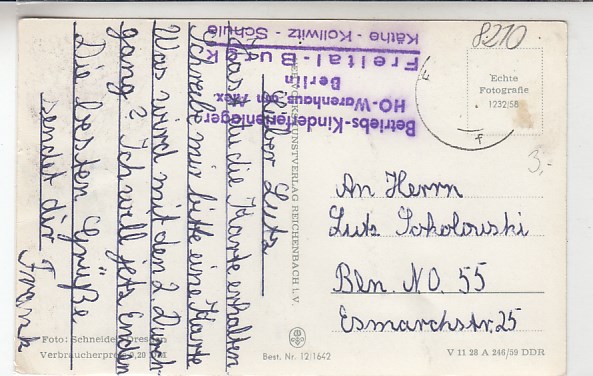 8210
Echte
Fotografie
1232/58
3,-
Betriebs-Kinderferienlager
HO-Warenhaus am Alex
Berlin
Freital-Burgk
Käthe-Kollwitz-Schule
Lieber Lutz
Hast du die Karte erhalten
Schreibe mir bitte eine Karte
Was wird mit den 2 Durch-
gang? Ich will jetz Enden
Die besten Grüße
sendet dir
Frank
An Herrn
Lutz Sokolowski
Bln. N.O. 55
Esmarchstr. 25
KUNSTVERLAG REICHENBACH i. V.
Foto: Schneider, Dresden
Verbraucherpreis 0,20 DM
Best. Nr. 12/1642
V 11 28 A 246/59 DDR